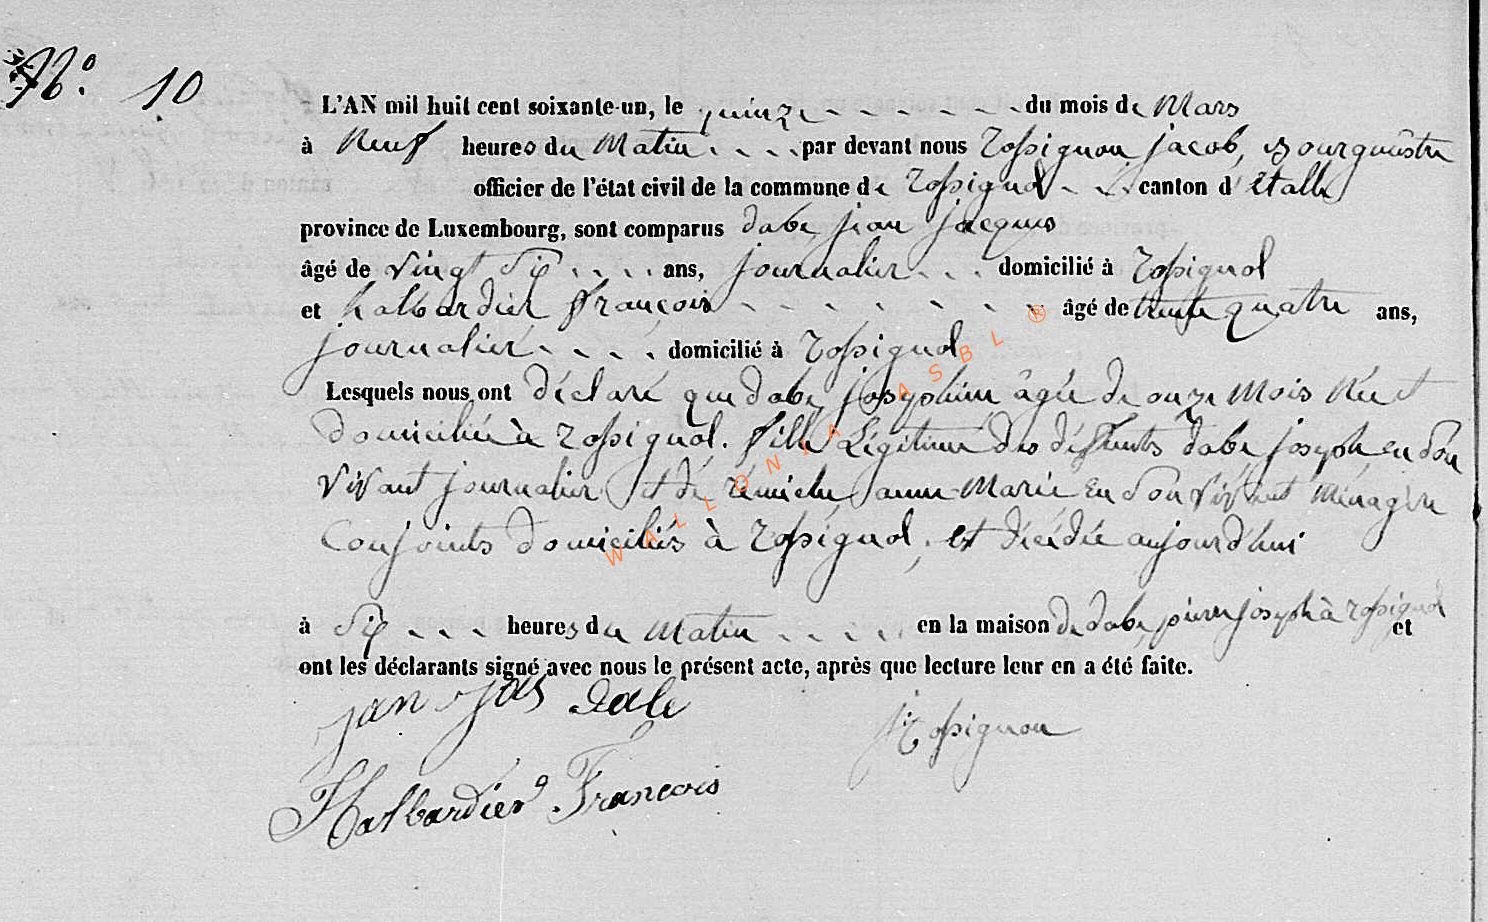 N° 10
L'AN mil huit cent soixante-un, le quinze du mois de Mars
à Neuf heures du Matin par devant nous Rossignon jacob, Bourgmestre
officier de l'état civil de la commune de Rossignol canton d'étalle
province de Luxembourg, sont comparus dabe jean jacques
âgé de vingt Six ans, journalier domicilié à Rossignol
et halbardier françois âgé de trente quatre ans,
journalier domicilié à Rossignol
Lesquels nous ont déclaré que dabe josephine âgée de onze Mois Née et
domiciliée à Rossignol. fille Légitime des défunts dabe joseph en Son
vivant journalier et de anne Marie En Son vivant Ménagère
Conjoints domiciliés à Rossignol, et décédée aujourd'hui
à Six heures du Matin en la maison de dabe, pierre joseph à Rossignol et
ont les déclarants signé avec nous le présent acte, après que lecture leur en a été faite.
jan Dabe
J Rossignon
Halbardier François
WALLONIA ASBL ®